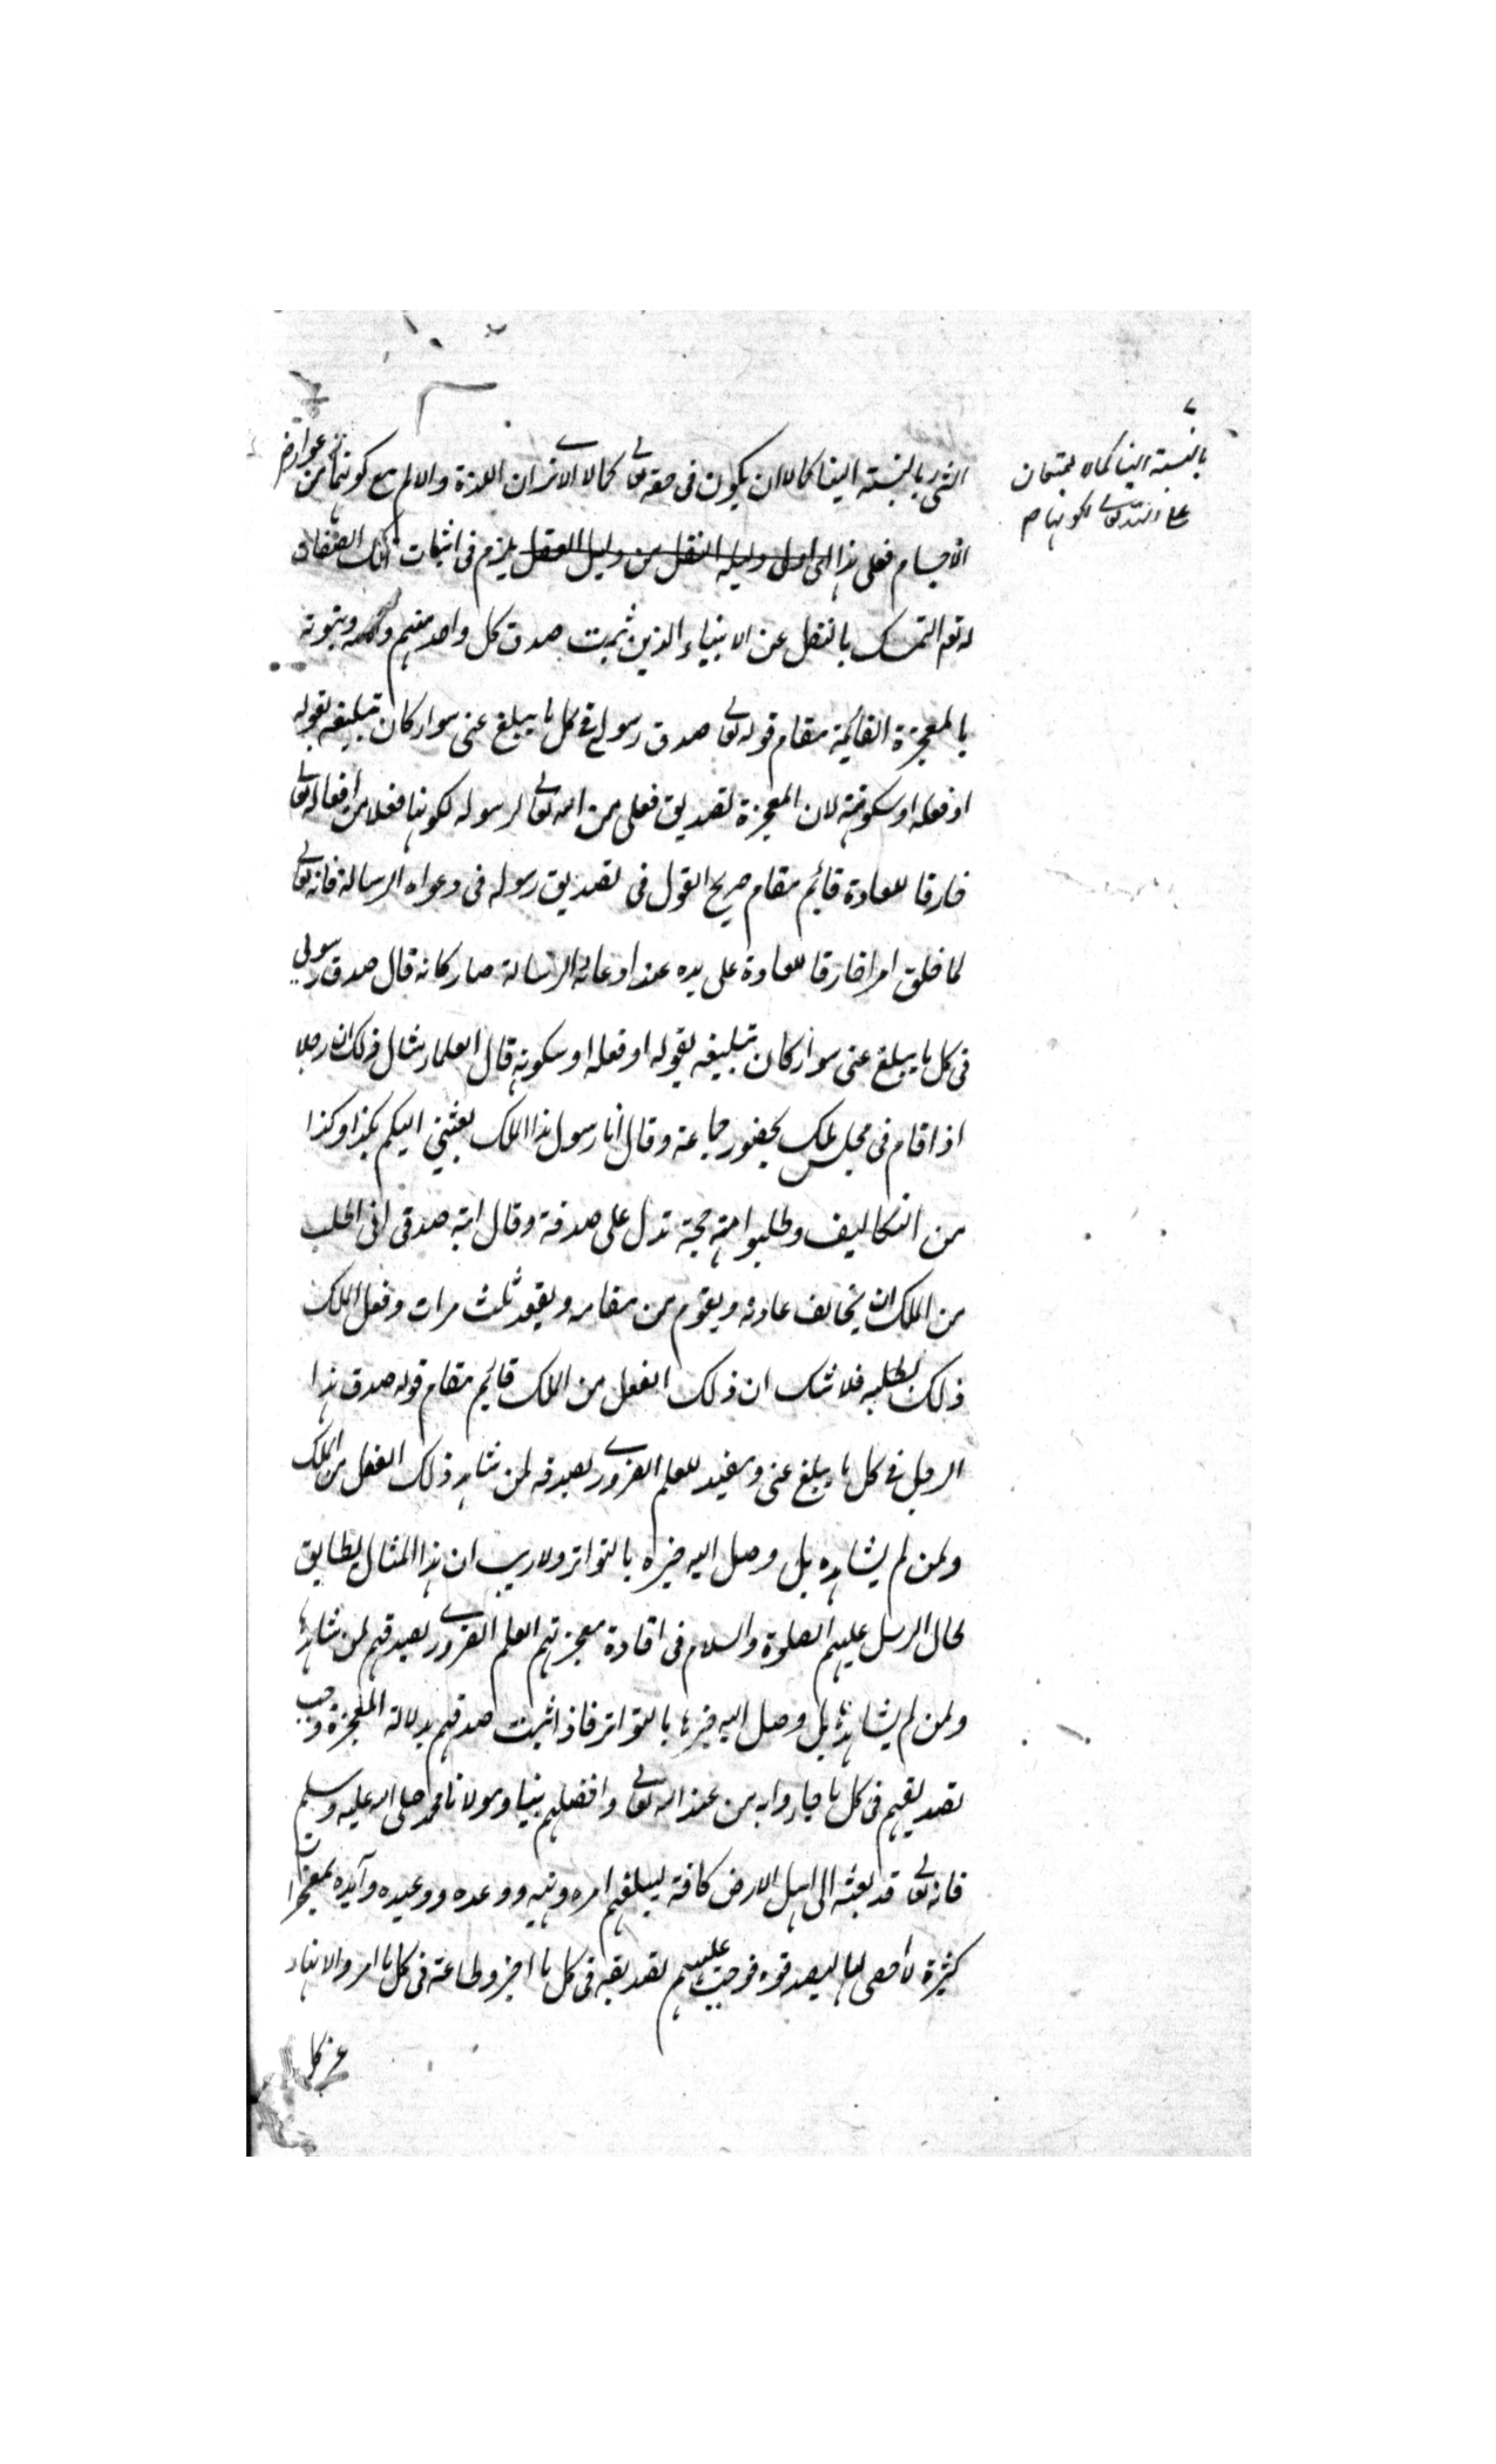 الشئ بالنسبة الينا كمالا ان يكون فى حقه تعالى كمالا الا ترى ان اللذة والالم مع كونهما من عوارض
الاجسام فعلى هذا يلزم فى اثبات تلك الصفات
له تعالى التمسك بالنقل عن الانبياء الذين ثبت صدق كل واحد منهم ونبوته
بالمعجزة القائمة مقام قوله تعالى صدق رسولى فى كل ما يبلغ عنى سواء كان تبليغه بقوله
او فعله او سكوته لان المعجزة تصديق فعلى من الله تعالى لرسوله لكونها فعلا من افعاله تعالى
خارقا للعادة قائم مقام صريح القول فى تصديق رسوله فى دعواه الرسالة فانه تعالى
لما خلق امرا خارقا للعادة على يده عند ادعائه الرسالة صار كانه قال صدق رسولى
فى كل ما يبلغ عنى سواء كان تبليغه بقوله او فعله او سكوته قال العلماء مثال ذلك ان رجلا
اذا قام فى مجلس ملك بحضور جماعة وقال أنا رسول هذا الملك بعثنى اليكم بكذا وكذا
من التكاليف وطلبوا منه حجة تدل على صدقه وقال اية صدقى انى اطلب
من الملك ان يخالف عادته ويقوم من مقامه ويقعد ثلث مرات وفعل الملك
ذلك بطلبه فلا شك ان ذلك الفعل من الملك قائم مقام قوله صدق هذا
الرجل فى كل ما يبلغ عنى ومفيد للعلم الضرورى بصدقه لمن شاهد ذلك الفعل من الملك
ولمن لم يشاهده بل وصل اليه خبره بالتواتر ولا ريب ان هذا المثال يطابق
لحال الرسل عليهم الصلوة والسلام فى افادة معجزتهم العلم الضرورى بصدقهم لمن شاهدها
ولمن لم يشاهدها بل وصل اليه خبرها بالتواتر فاذا ثبت صدقهم بدلالة المعجزة وجب
تصديقهم فى كل ما جاروا به من عند الله تعالى وافضلهم نبينا ومولانا محمد صلى الله عليه وسلم
فانه تعالى قد بعثه الى اهل الارض كافة ليبلغهم امره ونهيه ووعده ووعيده وأيده بمعجزات
كثيرة لا حصى لها ليصدقوه فوجب عليهم تصديقه فى كل ما اخبر وطاعته فى كل ما امر والانتهاء
عن كل
بالنسبة الينا كمالا يمتنعان
على الله تعالى لكونهما